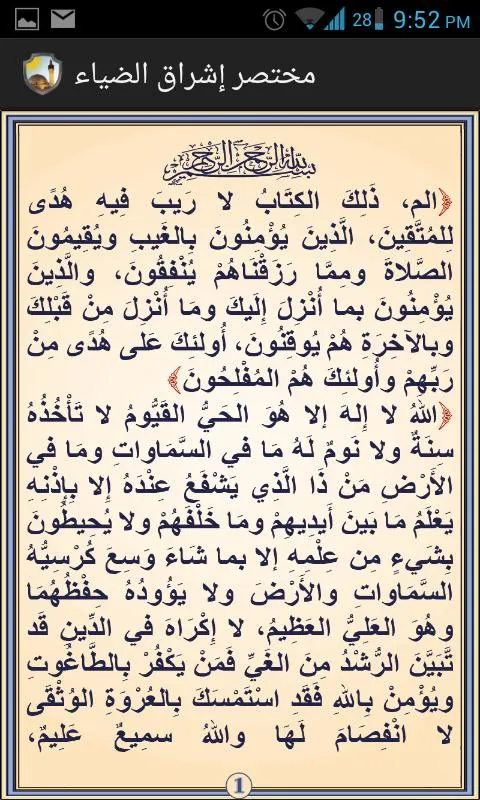 28 9:52 PM
مختصر إشراق الضياء
بسم الله الرحمن الرحيم
﴿الم، ذَلِكَ الكِتَابُ لا رَيبَ فِيهِ هُدًى
لِلمُتَّقِينَ، الَّذِينَ يُؤْمِنُونَ بِالغَيبِ ويُقِيمُونَ
الصَّلاةَ ومِمَّا رَزَقْنَاهُمْ يُنْفِقُونَ، والَّذِينَ
يُؤْمِنُونَ بما أُنْزِلَ إِلَيكَ ومَا أُنْزِلَ مِنْ قَبْلِكَ
وبالآخِرَةِ هُمْ يُوقِنُونَ، أُولئكَ عَلَى هُدًى مِنْ
رَبِّهِمْ وأُولئكَ هُمُ المُفْلِحُونَ﴾
﴿اللهُ لا إلهَ إلا هُوَ الحَيُّ القَيُّومُ لا تَأْخُذُهُ
سِنَةٌ ولا نَومٌ لَهُ مَا في السَّمَاواتِ ومَا في
الأَرْضِ مَنْ ذَا الَّذِي يَشْفَعُ عِنْدَهُ إلا بِإِذْنِهِ
يَعْلَمُ مَا بَينَ أَيدِيهِمْ ومَا خَلْفَهُمْ ولا يُحِيطُونَ
بِشَيءٍ مِن عِلْمِهِ إلا بما شَاءَ وَسِعَ كُرْسِيُّهُ
السَّمَاواتِ والأَرْضَ ولا يَؤُودُهُ حِفْظُهُمَا
وهُوَ العَلِيُّ العَظِيمُ، لا إِكْرَاهَ في الدِّينِ قَد
تَّبَيَّنَ الرُّشْدُ مِنَ الغَيِّ فَمَنْ يَكْفُرْ بِالطَّاغُوتِ
ويُؤْمِنْ بِاللهِ فَقَد اسْتَمْسَكَ بِالعُرْوَةِ الوُثْقَى
لا انْفِصَامَ لَهَا واللهُ سمِيعٌ عَلِيمٌ،
1